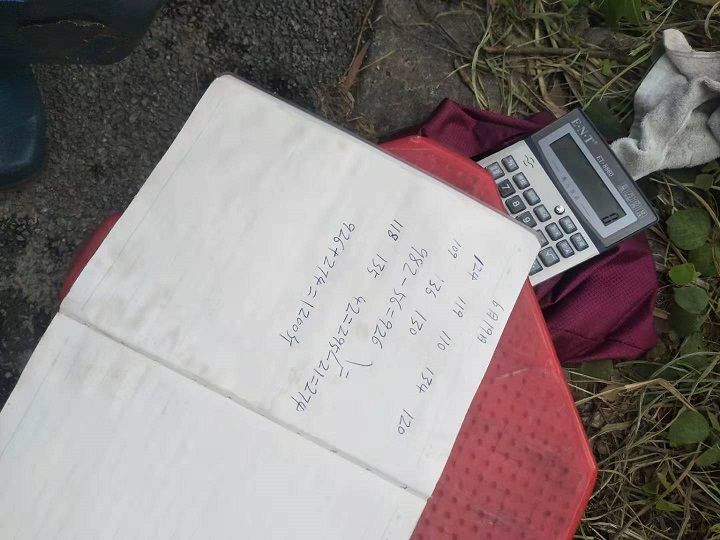 6月19日
124 119 110 134 120
109 136 130
982-56=926
118 135 42=295-21=274
926+274=1200斤
E.N.T